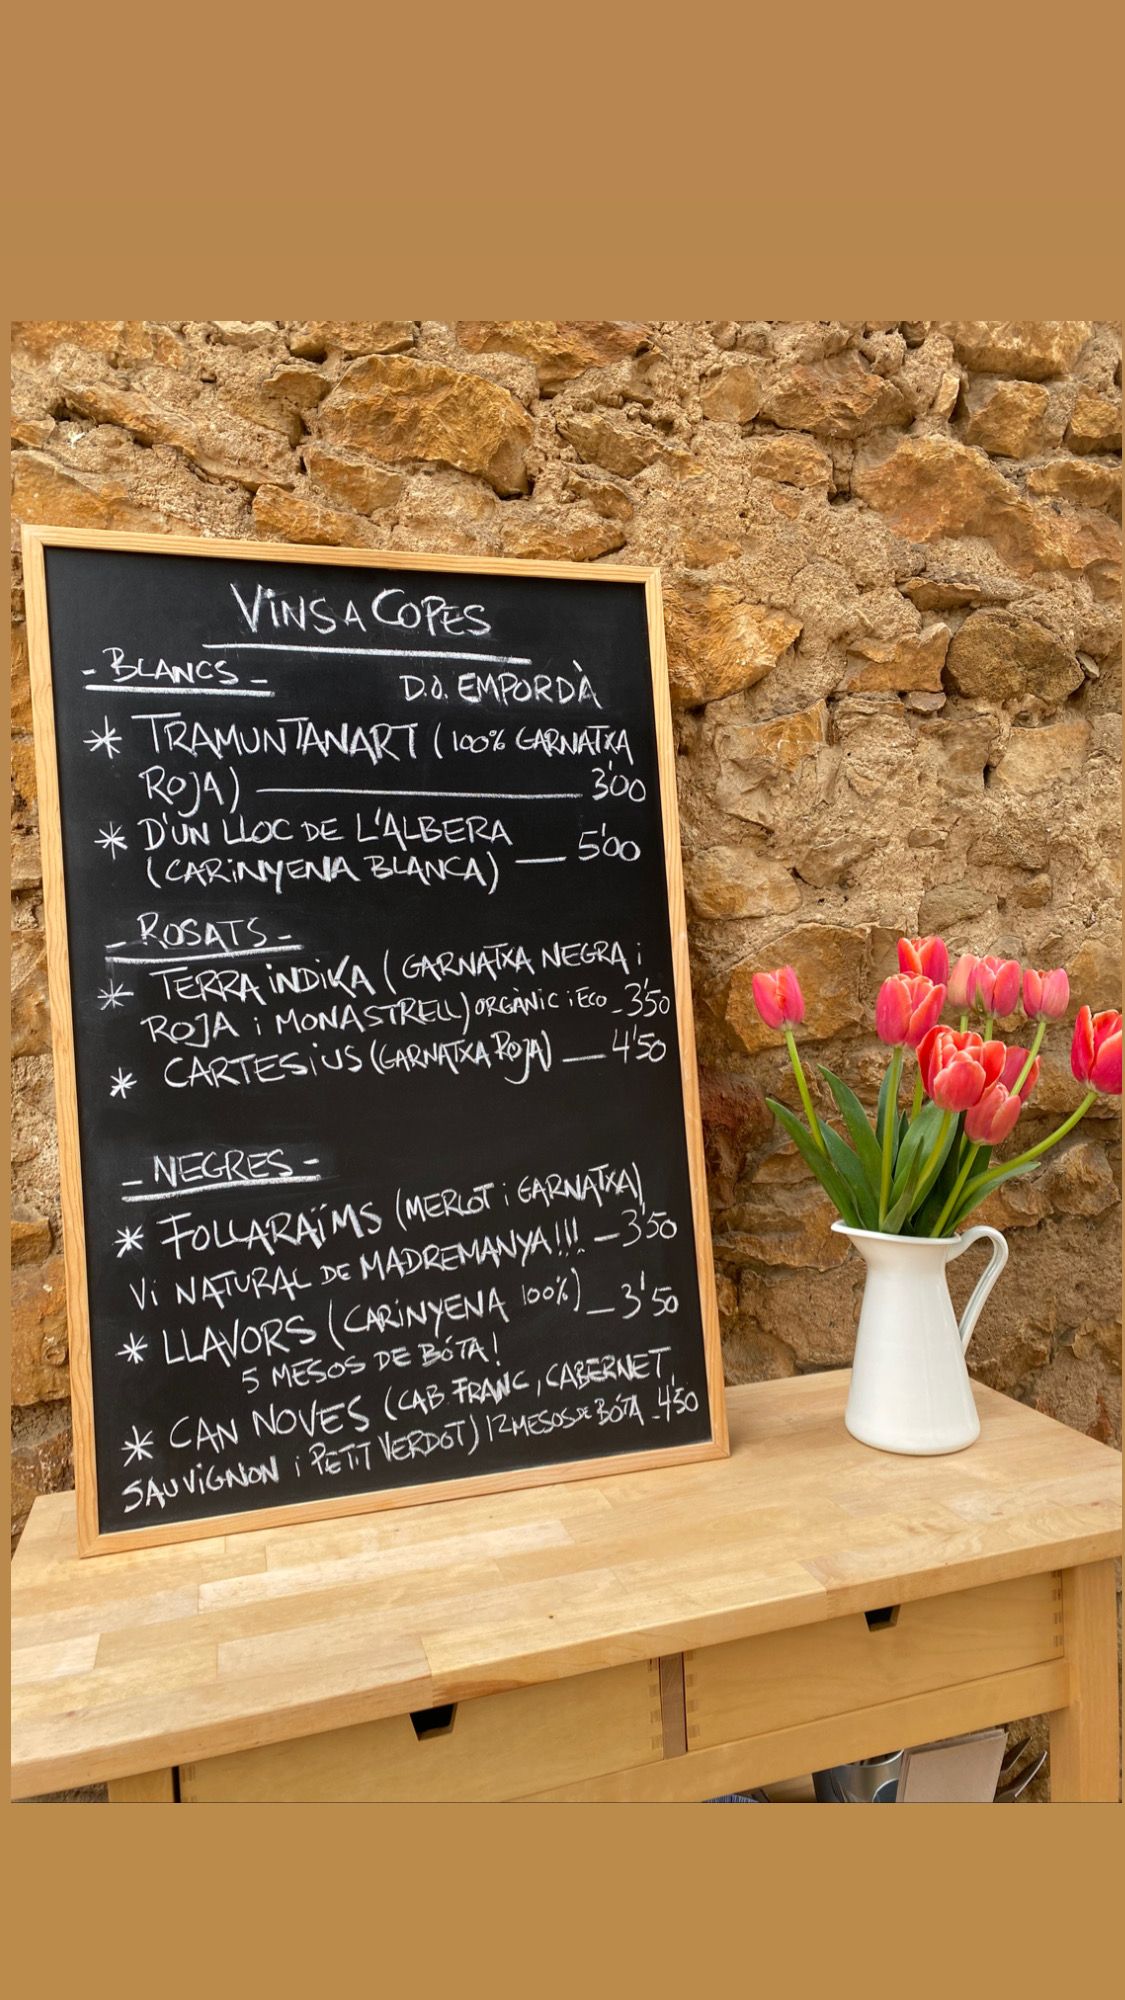 VINS A COPES
- BLANCS -
D.O. EMPORDÀ
* TRAMUNTANART (100% GARNATXA
ROJA) —— 3'00
* D'UN LLOC DE L'ALBERA
(CARINYENA BLANCA) — 5'00
- ROSATS -
* TERRA INDIKA (GARNATXA NEGRA i
ROJA i MONASTRELL) ORGÀNIC i ECO - 3'50
* CARTESIUS (GARNATXA ROJA) — 4'50
- NEGRES -
* FOLLARAÏMS (MERLOT i GARNATXA)
VI NATURAL DE MADREMANYA!!! - 3'50
* LLAVORS (CARINYENA 100%) - 3'50
5 MESOS DE BÓTA!
* CAN NOVES (CAB. FRANC, CABERNET
SAUVIGNON i PETIT VERDOT) 12 MESOS DE BÓTA - 4'50